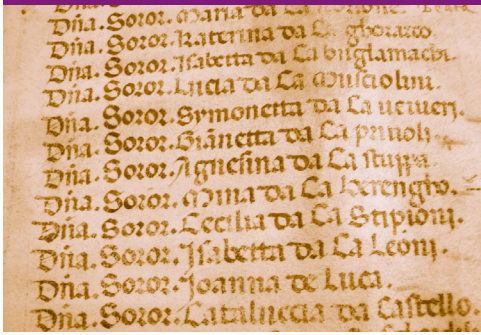 Dña. Soror. Maria da Ca
Dña. Soror. Katerina da Ca ghoraço
Dña. Soror. Isabetta da Ca businglamachi.
Dña. Soror. Lucia da Ca Musciolini.
Dña. Soror. Symonetta da Ca
Dña. Soror. Giãnetta da Ca prinoli.
Dña. Soror. Agnesina da Ca stuppa.
Dña. Soror. Mina da Ca berengho.
Dña. Soror. Cecilia da Ca Stipioni.
Dña. Soror. Isabetta da Ca Leoni.
Dña. Soror. Joanna de Luca.
Dña. Soror. Cataluccia da Castello.